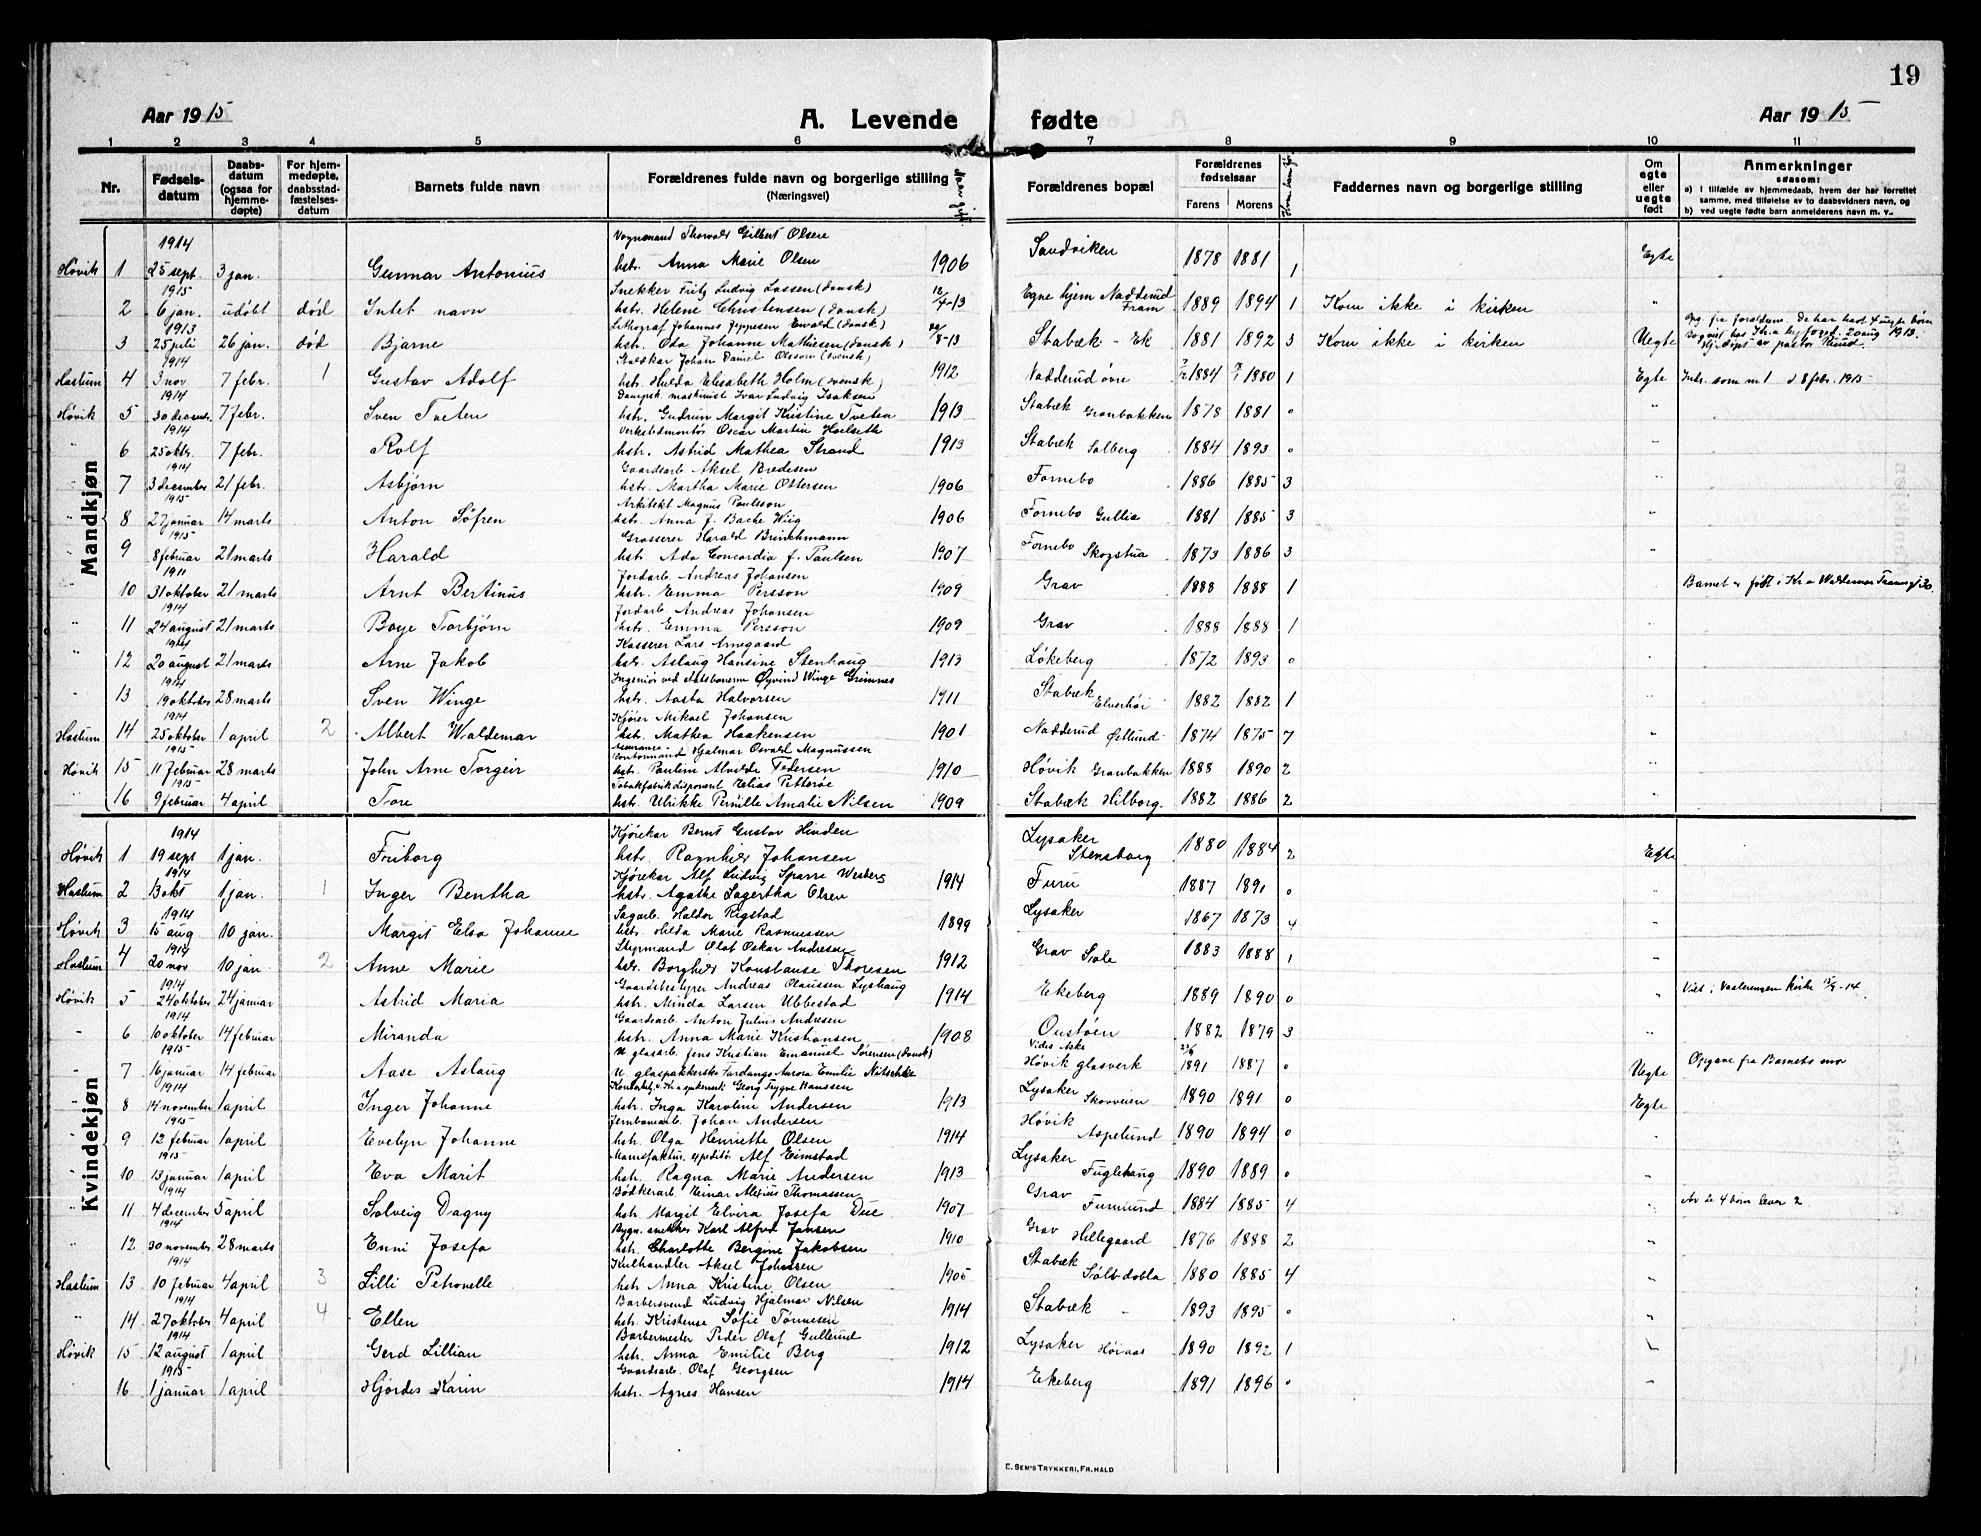 19
Aar 1915 A. Levende fødte Aar 1915
1 2 3 4 5 6 7 8 9 10 11
Nr.
Fødsels-datum
Daabs-datum (ogsaa for hjemme-døpte)
For hjem-medøpte, daabsstad-fæstelses-datum
Barnets fulde navn
Forældrenes fulde navn og borgerlige stilling (Næringsvei)
Forældrenes bopæl
Forældrenes fødselsaar
Farens Morens
Faddernes navn og borgerlige stilling
Om egte eller uegte født
Anmerkninger
saasom:
a) i tilfælde av hjemmedaab, hvem der har forrettet samme, med tilføielse av to daabsvidners navn, og
b) ved uegte fødte barn anmelderens navn m. v.
Mandkjøn
1914 Vognmand Thorvald Gilbert Olsen
Høvik 1 25 sept. 3 jan. Gunnar Antonius hstr. Anna Marie Olsen 1906 Sandviken 1878 1881 1 Egte
1915 Snekker Fritz Ludvig Lassen (dansk)
2 6 jan. udøbt død Intet navn hstr. Helene Christensen (dansk) 12/4-13 Egne hjem Nadderud Fram 1889 1894 1 Kom ikke i kirken "
1913 Lithograf Johannes Jeppesen Ewald (dansk)
3 25 juli 26 jan. død Bjarne hstr. Oda Johanne Mathiesen (dansk) 8-13 Stabæk - Ek 1881 1892 3 Kom ikke i kirken Uegte
1914 Johan Daniel Olsson (svensk)
Haslum 4 3 nov 7 febr. 1 Gustav Adolf hstr. Hulda Elisabeth Holm (svensk) 1912 Nadderud øvre 1884 1880 1 Egte Indr. som nr 1 d 8 febr. 1915
1914 Dampsk. maskinist Ivar Ludvig Isaksen
Høvik 5 30 decem. 7 febr. Sven Tveten hstr. Gudrun Margit Kristine Tveten 1913 Stabæk Granbakken 1878 1881 0 "
1914 Verkstedmontør Oscar Martin Haelseth
" 6 25 oktr. 7 febr. Rolf hstr. Astrid Mathea Strand 1913 Stabæk Solberg 1884 1893 0 "
1914 Gaardsarb Aksel Bredesen
" 7 3 december 21 febr. Asbjørn hstr. Martha Marie Ottersen 1906 Fornebo 1886 1885 3 "
1915 Arkitekt Magnus Paulsson
" 8 27 januar 14 marts Anton Søfren hstr. Anna J. Bache Wiig 1906 Fornebo Gullia 1881 1885 3 "
1915 Grosserer Harald Brinchmann
" 9 8 februar 21 marts Harald hstr. Ada Concordia f. Paulsen 1907 Fornebo Skogstua 1873 1886 3 "
1911 Jordarb. Andreas Johansen
" 10 31 oktober 21 marts Arnt Bertinus hstr. Emma Persson 1909 Grav 1888 1888 1 " Barnet er født i Kr.a Waldemar Tranesgt 30.
1914 Jordarb. Andreas Johansen
" 11 24 august 21 marts Boye Torbjørn hstr. Emma Persson 1909 Grav 1888 1888 1 "
1914 Kasserer Lars Arnegaard
" 12 20 august 21 marts Arne Jakob hstr. Aslaug Hansine Stenhaug 1913 Løkeberg 1872 1893 0 "
1914 Ingeniør ved Statsbanerne Øyvind Winge Grimnes
" 13 19 oktober 28 marts Sven Winge hstr. Aasta Halvorsen 1911 Stabæk Elverhøi 1882 1882 1 "
1914 Kjører Mikael Johansen
Haslum 14 25 oktober 1 april 2 Albert Waldemar hstr. Mathea Haakensen 1901 Nadderud Østlund 1874 1875 7 "
1915 Kontormand Hjalmar Osvald Magnussen
Høvik 15 11 februar 28 marts John Arne Torgeir hstr. Pauline Alvilde Pedersen 1910 Høvik Granbakken 1888 1890 2 "
1915 Tobakfabrikdisponent Elias Petterøe
" 16 9 februar 4 april Tore hstr. Ulrikke Pernille Amalie Nilsen 1909 Stabæk Hilborg. 1882 1886 2 "
Kvindekjøn
1914 Kjørekar Bernt Gustav Hinden
Høvik 1 19 sept 1 jan. Friborg hstr. Ragnhild Johansen Lysaker Stensborg 1880 1884 2 Egte
1914 Kjørekar Alf Ludvig Sparre Westberg
Haslum 2 13 okt 1 jan. 1 Inger Bentha hstr. Agathe Lagertha Olsen 1914 Furu 1887 1891 0 "
1914 Sagarb. Haldor Rigstad
Høvik 3 15 aug 10 jan. Margit Elsa Johanne hstr. Hilda Marie Rasmussen 1899 Lysaker 1867 1873 4 "
1914 Styrmand Olaf Oskar Andresen
Haslum 4 20 nov 10 jan 2 Anne Marie hstr. Borghild Konstanse Thoresen 1912 Grav Sole 1883 1888 1 "
1914 Gaardsbestyrer Andreas Olaussen Lyshaug
Høvik 5 24 oktober 24 januar Astrid Maria hstr. Minda Larsen Ubbestad 1914 Ekeberg 1889 1890 0 " Viet i Vaalerengen kirke 12/9-14.
1914 Gaardsarb. Anton Julius Andresen
" 6 10 oktober 14 februar Miranda hstr. Anna Marie Kristiansen 1908 Oustøen 1882 1879 3 "
1915 U. glasarb. Jens Kristian Emanuel Sørensen (dansk)
" 7 16 januar 14 februar Aase Aslaug U. glaspakkerske Fardangs Aurora Emilie Nitschke Høvik glasverk 1891 1887 0 Uegte Opgave fra Barnets mor
1914 Georg Trygve Hanssen
" 8 14 november 1 april Inger Johanne hstr. Inga Karoline Andersen 1913 Lysaker Skovveien 1890 1891 0 Egte
1915 Jernbanearb. Johan Andersen
" 9 12 februar 1 april Evelyn Johanne hstr. Olga Henriette Olsen 1914 Høvik Aspelund 1890 1894 0 "
1915 Manufaktur. expeditør Alf Eimstad
" 10 13 januar 1 april Eva Marit hstr. Ragna Marie Andersen 1913 Lysaker Fuglehaug 1890 1889 0 "
1914 Bødkerarb. Einar Alexius Thomassen
" 11 4 december 5 april Solveig Dagny hstr. Margit Elvira Josefa Due 1907 Grav Furulund 1884 1885 4 " Av de 4 børn lever 2.
1914 Bygn. snekker Karl Alfred Jansen
" 12 30 november 28 marts Enni Josefa hstr. Charlotte Bergine Jakobsen 1910 Grav Hillegaard 1876 1888 2 "
1914 Kulhandler Aksel Johansen
Haslum 13 10 februar 4 april 3 Lilli Petronelle hstr. Anna Kristine Olsen 1905 Stabæk Sølvdobla 1880 1885 4 "
1914 Barbersvend Ludvig Hjalmar Nilsen
" 14 27 oktober 4 april 4 Ellen hstr. Kristense Sofie Tønnesen 1914 Stabæk 1893 1895 0 "
1914 Barbermester Peder Olaf Gullerud
Høvik 15 12 august 1 april Gerd Lillian hstr. Anna Emilie Berg 1912 Lysaker 1890 1892 1 "
1915 Gaardsarb. Olaf Georgsen
" 16 1 januar 1 april Hjørdis Karin hstr. Agnes Hansen 1914 Ekeberg 1891 1896 0 "
E. SEM'S TRYKKERI, FR.HALD